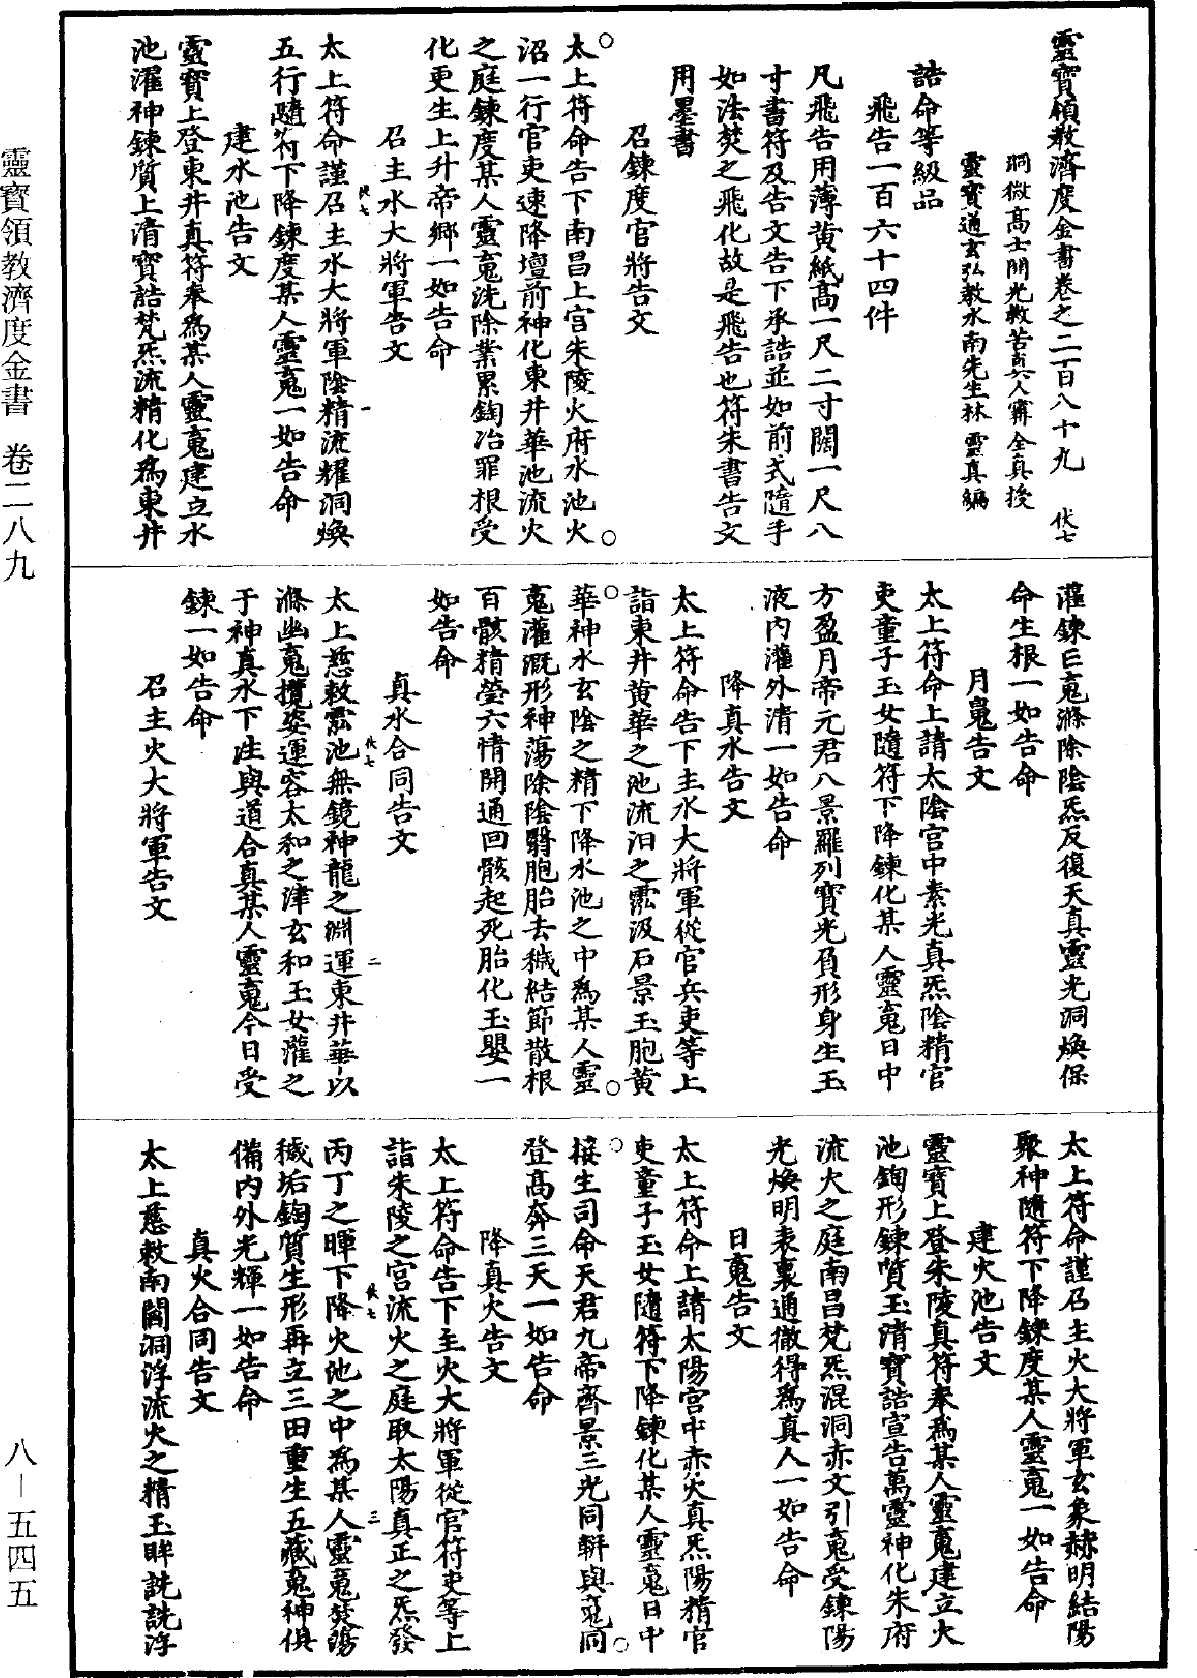 靈寶領教濟度金書卷之二百八十九　伏七
洞微高士開光救苦真人甯全真授
靈寶通玄弘教水南先生林靈真編
誥命等級品
飛告一百六十四件
凡飛告用薄黄紙高一尺二寸闊一尺八
寸書符及告文告下承誥並如前式隨手
如法焚之飛化故是飛告也符朱書告文
用墨書
召鍊度官將告文
太上符命告下南昌上宫朱陵火府水池火
沼一行官吏速降壇前神化東井華池流火
之庭鍊度某人靈䰟洗除業累鍧冶罪根受
化更生上升帝鄉一如告命
召主水大將軍告文
太上符命謹召主水大將軍陰精流耀洞煥
五行隨符下降鍊度某人靈䰟一如告命
建水池告文
靈寶上登東井真符奉為某人靈䰟建立水
池濯神鍊質上清寶誥梵炁流精化為東井
灌鍊亡䰟滌除陰炁反復天真靈光洞煥保
命生根一如告命
月䰟告文
太上符命上請太陰宫中素光真炁陰精官
吏童子玉女隨符下降鍊化某人靈䰟日中
方盈月帝元君八景羅列寶光負形身生玉
液内灌外清一如告命
降真水告文
太上符命告下主水大將軍從官兵吏等上
詣東井黄華之池流汨之䨩汲石景玉胞黄
華神水玄陰之精下降水池之中為某人靈
䰟灌溉形神蕩除陰翳胞胎去穢結節散根
百骸精瑩六情開通回骸起死胎化玉嬰一
如告命
真水合同告文
太上慈敕䨩池無鏡神龍之淵運東井華以
滌幽䰟攬姿運容太和之津玄和玉女灌之
于神真水下注與道合真某人靈䰟今日受
鍊一如告命
召主火大將軍告文
太上符命謹召主火大將軍玄象赫明結陽
聚神隨符下降鍊度某人靈䰟一如告命
建火池告文
靈寶上登朱陵真符奉為某人靈䰟建立火
池鍧形鍊質玉清寶誥宣告萬靈神化朱府
流火之庭南昌梵炁混洞赤文引䰟受鍊陽
光煥明表裏通徹得為真人一如告命
日䰟告文
太上符命上請太陽宫中赤火真炁陽精官
吏童子玉女隨符下降鍊化某人靈䰟日中
接生司命天君九帝齊景三光同輧與䰟同
登高奔三天一如告命
降真火告文
太上符命告下主火大將軍從官符吏等上
詣朱陵之宫流火之庭取太陽真正之炁發
丙丁之暉下降火池之中為某人靈䰟焚蕩
穢垢鍧質生形再立三田重生五藏䰟神俱
備内外光輝一如告命
真火合同告文
太上慈敕南閣洞浮流火之精玉眸詵詵浮
伏七　一
伏七　二
伏七　三
靈寶領教濟度金書　卷二八九
八—五四五